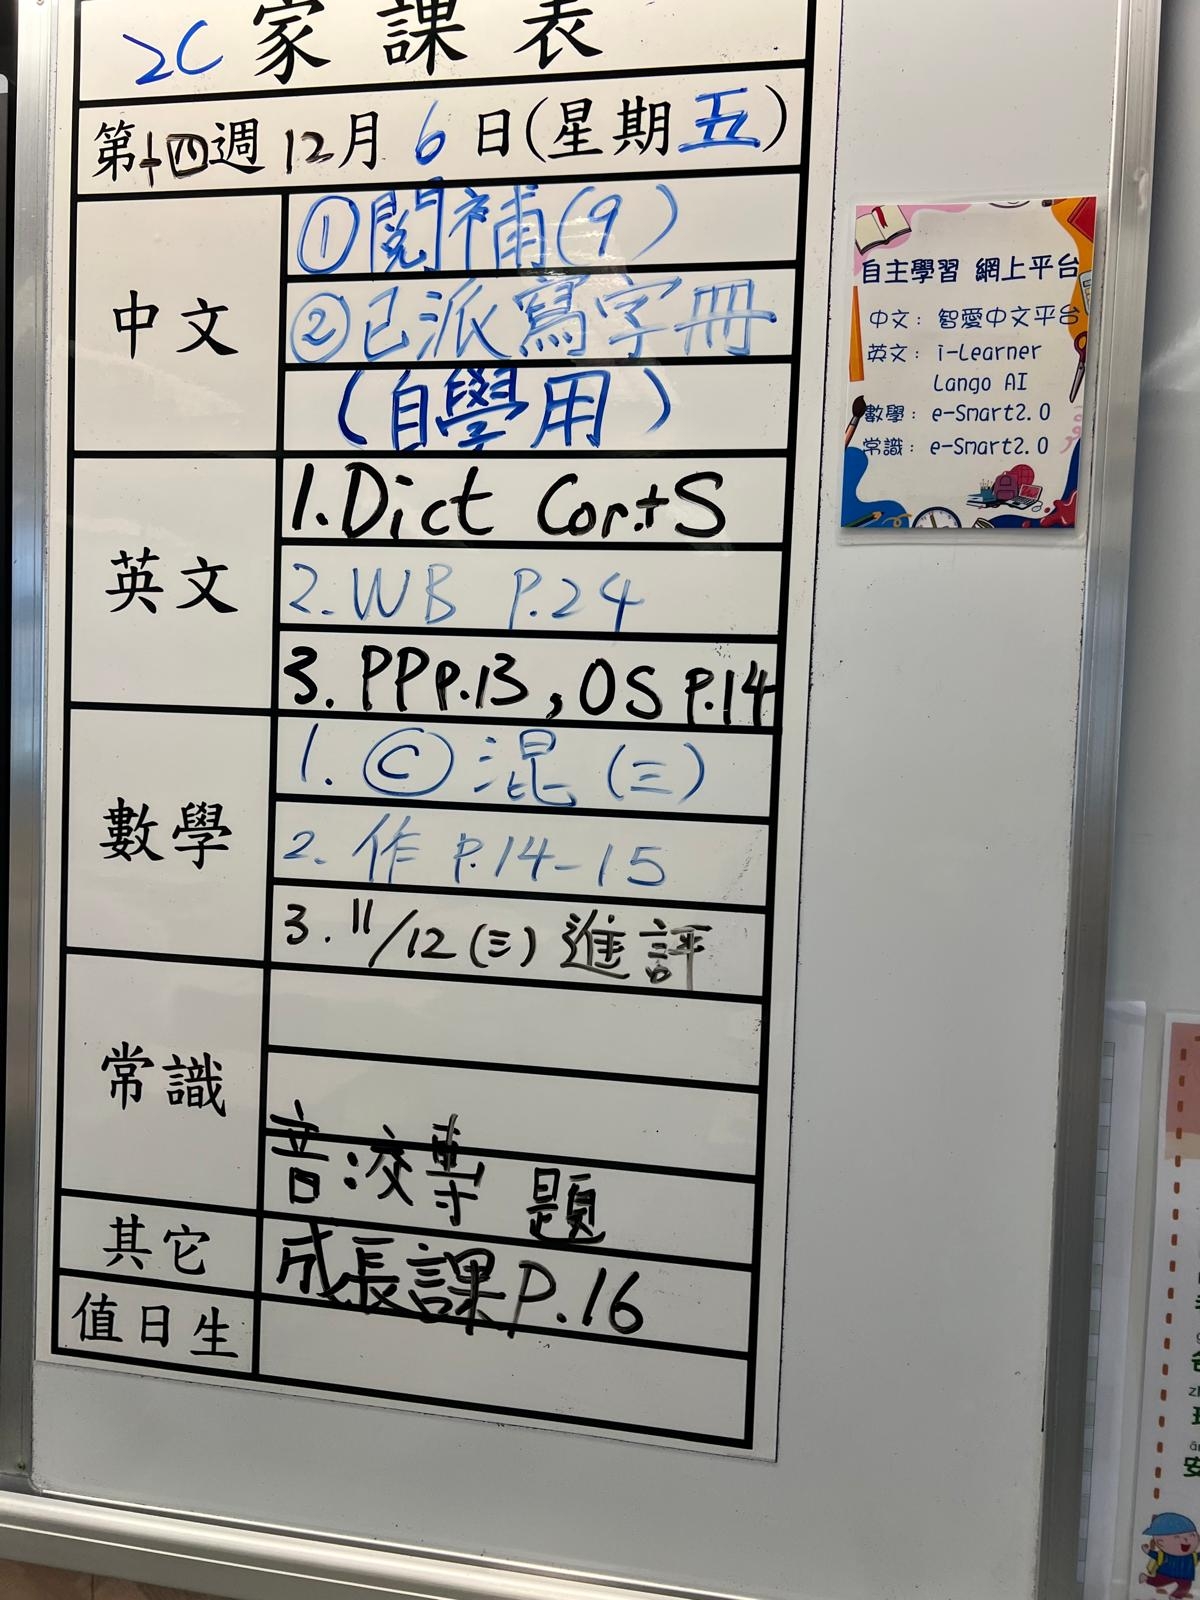 2C 家課表
第十四週 12月 6 日(星期五)
中文
①閱補(9)
②已派寫字冊
(自學用)
英文
1.Dict Cor.+S
2.WB P.24
3. PP p.13, OS p.14
數學
1. Ⓒ 混 (三)
2. 作 P.14-15
3. 11/12 (三) 進評
常識
音:交專題
其它
成長課P.16
值日生
自主學習 網上平台
中文: 智愛中文平台
英文: i-Learner
Lango AI
數學: e-Smart2.0
常識: e-Smart2.0